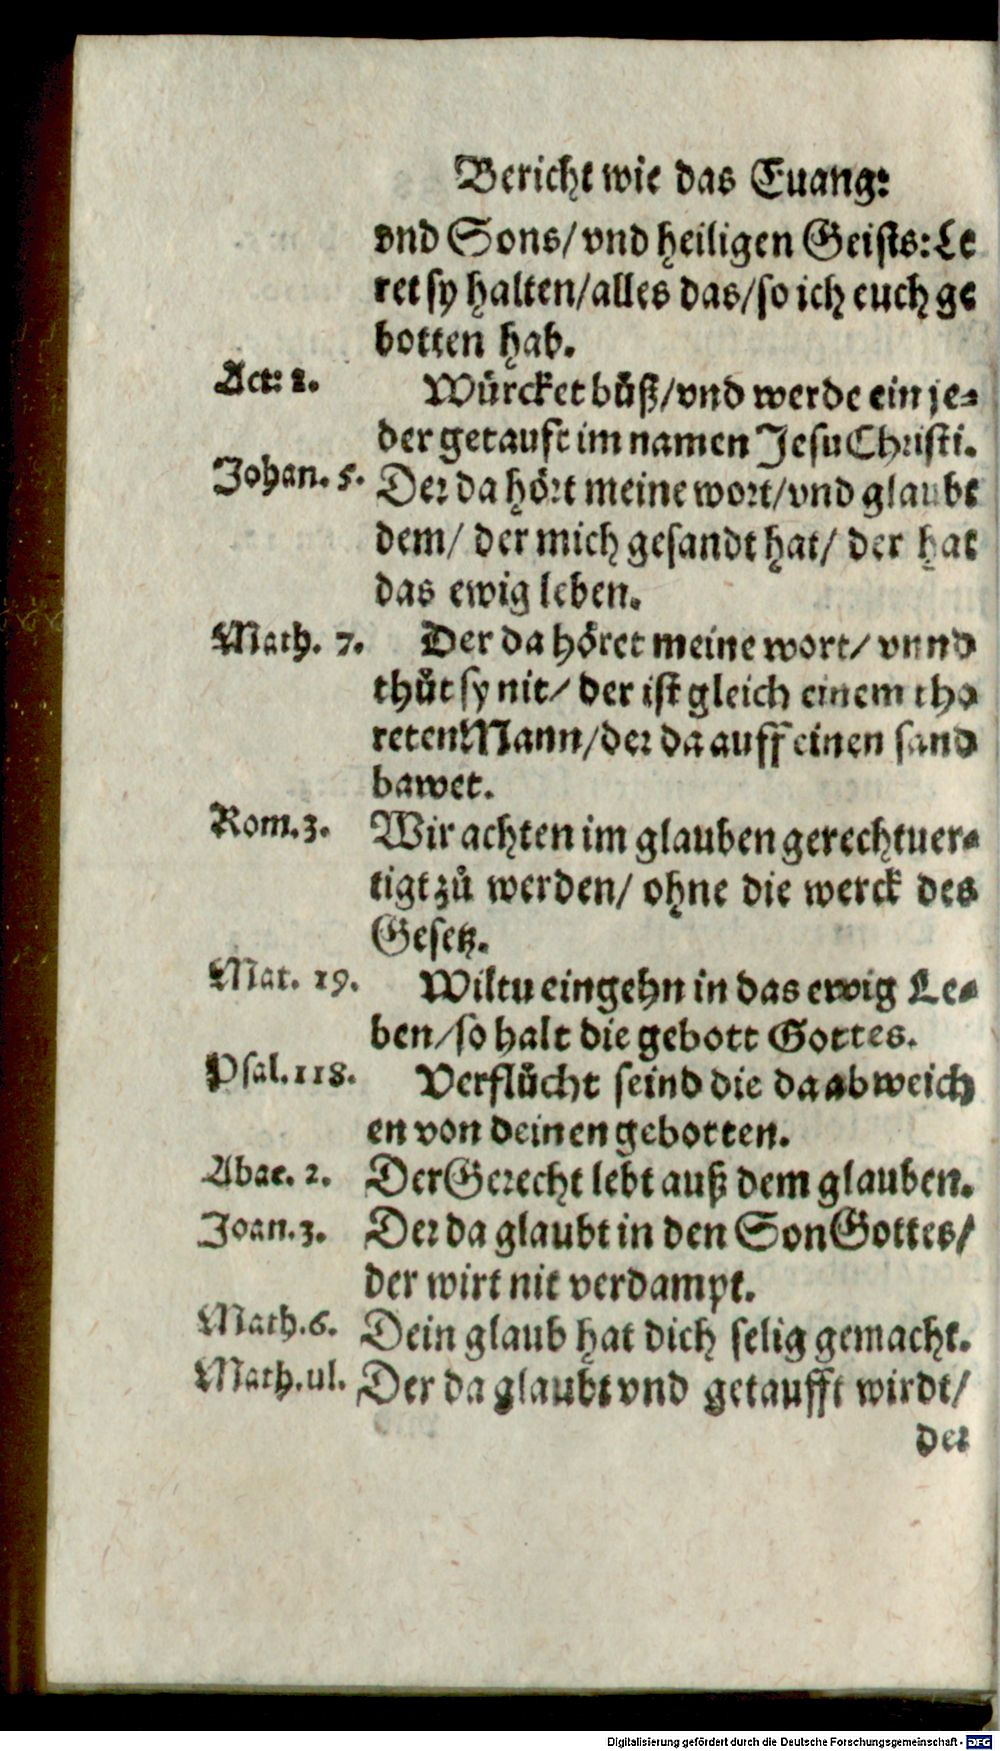 Bericht wie das Euang:
vnd Sons/vnd heiligen Geists: Le
ret sy halten/alles das/so ich euch ge
botten hab.
Act: 2.
Würcket bůß/vnd werde ein je-
der getauft im namen Jesu Christi.
Johan. 5.
Der da hört meine wort/vnd glaubt
dem/ der mich gesandt hat/ der hat
das ewig leben.
Math. 7.
Der da höret meine wort/ vnnd
thůt sy nit/ der ist gleich einem tho
reten Mann/der da auff einen sand
bawet.
Rom. 3.
Wir achten im glauben gerechtuer-
tigt zů werden/ ohne die werck des
Gesetz.
Mat. 19.
Wiltu eingehn in das ewig Le-
ben/so halt die gebott Gottes.
Psal. 118.
Verflůcht seind die da abweich
en von deinen gebotten.
Abac. 2.
Der Gerecht lebt auß dem glauben.
Joan. 3.
Der da glaubt in den Son Gottes/
der wirt nit verdampt.
Math. 6.
Dein glaub hat dich selig gemacht.
Math. ul.
Der da glaubt vnd getaufft wirdt/
der
Digitalisierung gefördert durch die Deutsche Forschungsgemeinschaft - DFG